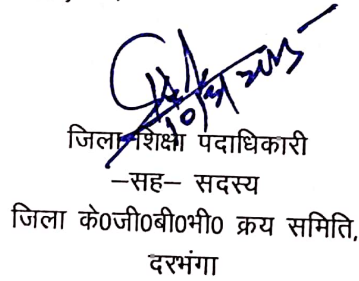 जिला शिक्षा पदाधिकारी
–सह– सदस्य
जिला के0जी0बी0भी0 क्रय समिति,
दरभंगा